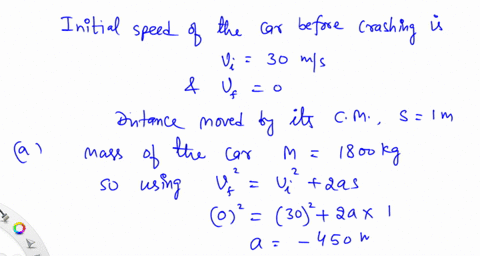 Initial speed of the car before crashing is
vᵢ = 30 m/s
& v_f = 0
Distance moved by its C.M., S = 1m
(a) mass of the car M = 1800 kg
so using v_f² = vᵢ² + 2as
(0)² = (30)² + 2a × 1
a = -450 m